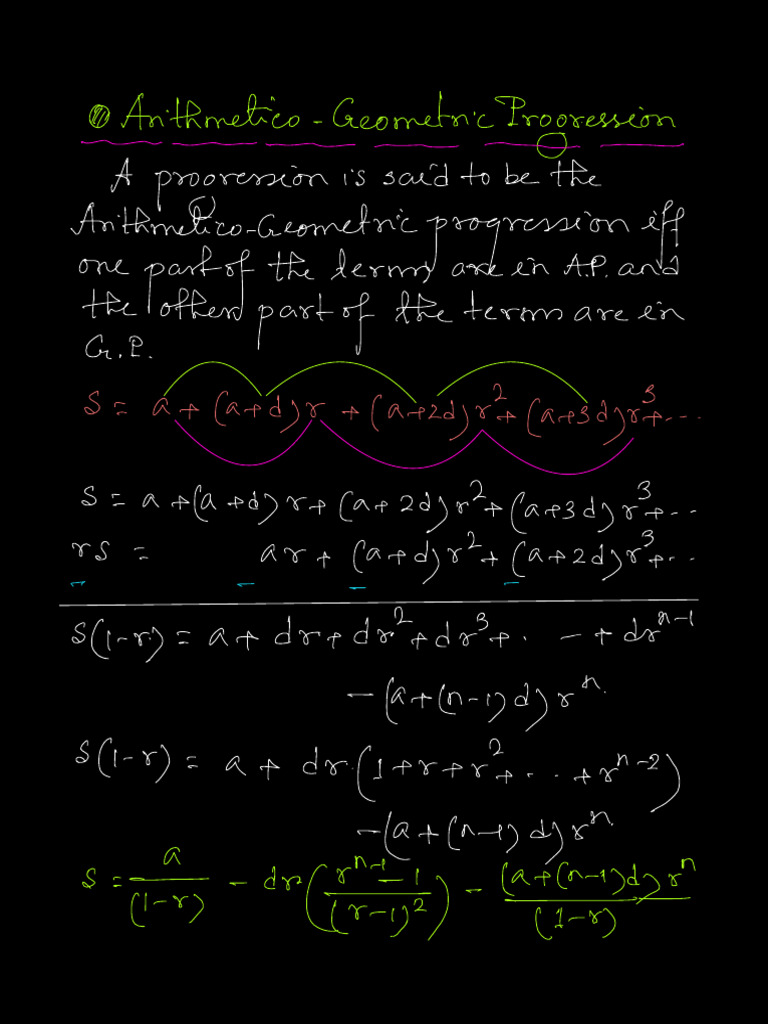 Arithmetico-Geometric Progression
A progression is said to be the
Arithmetico-Geometric progression iff
one part of the terms are in A.P. and
the other part of the terms are in
G.P.
S = a + (a+d)r + (a+2d)r² + (a+3d)r³+...
S = a + (a+d)r + (a+2d)r² + (a+3d)r³+...
rS = ar + (a+d)r² + (a+2d)r³+...
S(1-r) = a + dr + dr² + dr³ + . - + drⁿ⁻¹
- (a+(n-1)d)rⁿ.
S(1-r) = a + dr.(1+r+r²+...+rⁿ⁻²)
- (a+(n-1)d)rⁿ
S = a/(1-r) - dr((rⁿ⁻¹-1)/(r-1)²) - (a+(n-1)d)rⁿ/(1-r)